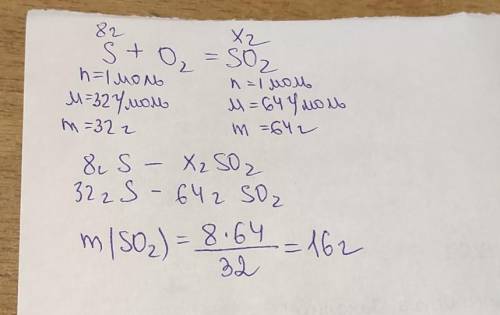 8г x г
S + O₂ = SO₂
n=1 моль n=1 моль
M=32 г/моль M=64 г/моль
m=32 г m=64 г
8г S – x г SO₂
32 г S – 64 г SO₂
m(SO₂) = 8·64/32 = 16 г